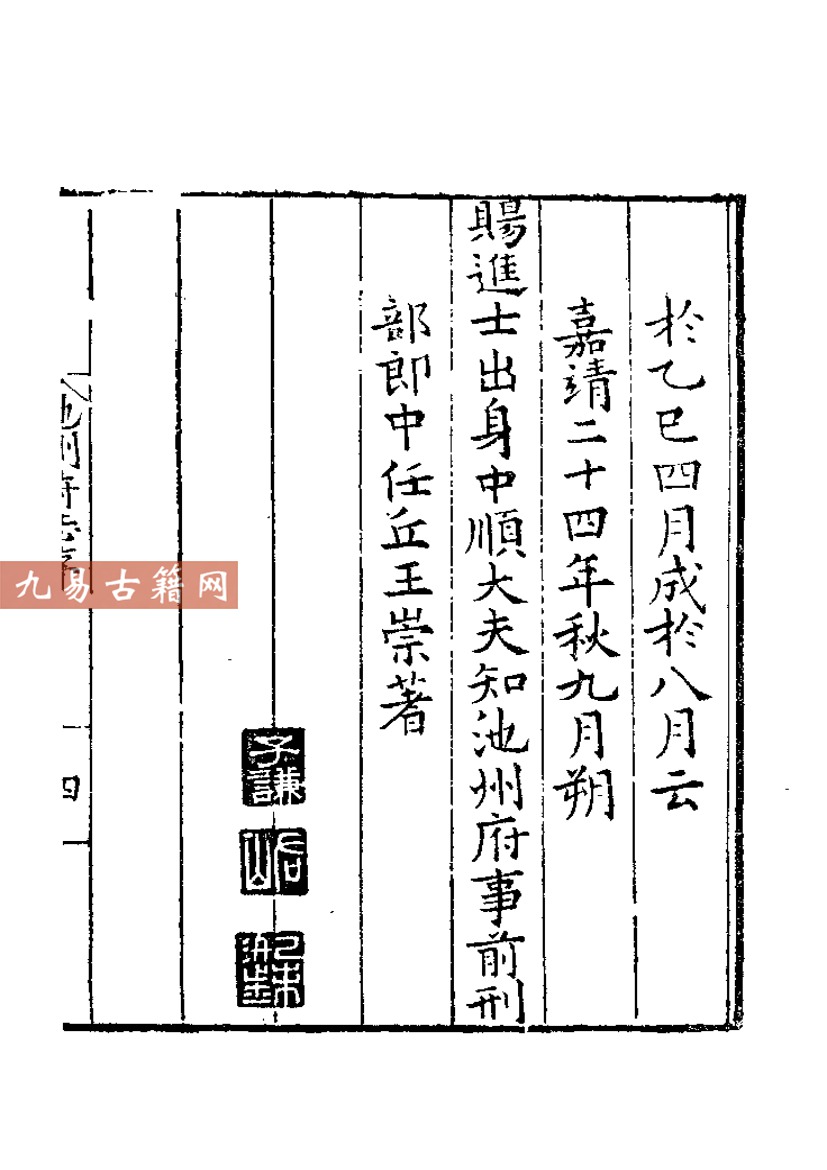 於乙巳四月成於八月云
嘉靖二十四年秋九月朔
賜進士出身中順大夫知池州府事前刑
部郎中任丘王崇著
子謙
四
九易古籍网